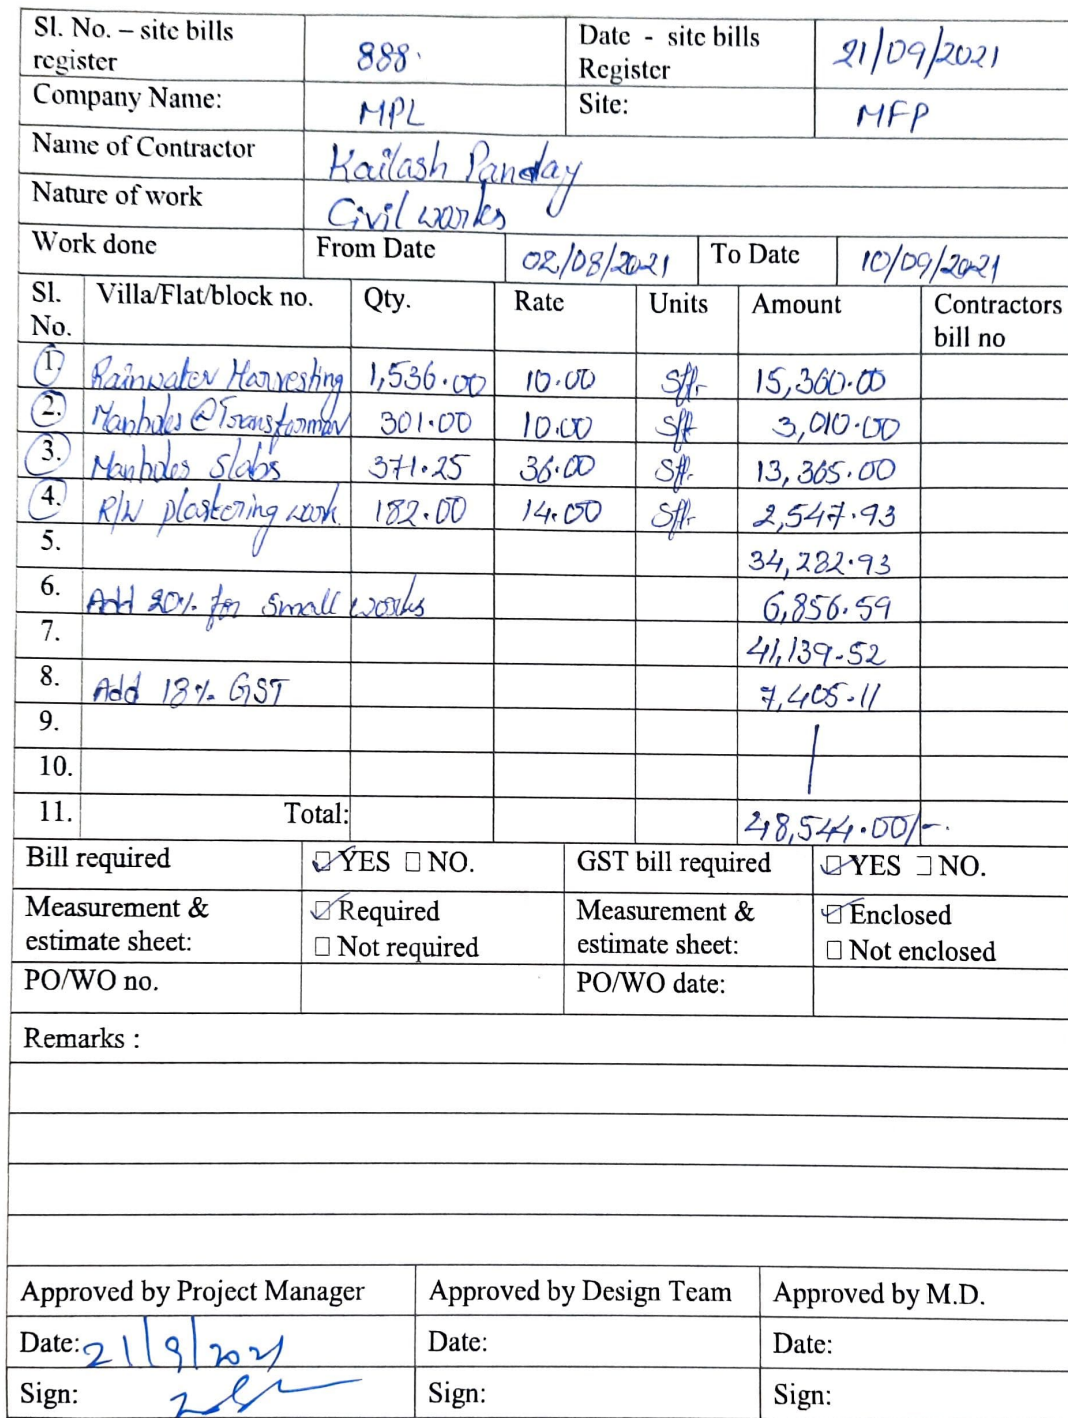 Sl. No. – site bills register 888. Date - site bills Register 21/09/2021
Company Name: MPL Site: MFP
Name of Contractor Kailash Panday
Nature of work Civil works
Work done From Date 02/08/2021 To Date 10/09/2021
Sl. No. Villa/Flat/block no. Qty. Rate Units Amount Contractors bill no
1. Rainwater Harvesting 1,536.00 10.00 Sft. 15,360.00
2. Manholes @Transformer 301.00 10.00 Sft 3,010.00
3. Manholes Slabs 371.25 36.00 Sft. 13,365.00
4. R/W plastering work. 182.00 14.00 Sft. 2,547.93
5. 34,282.93
6. Add 20% for small works 6,856.59
7. 41,139.52
8. Add 18% GST 7,405.11
9.
10.
11. Total: 48,544.00/-.
Bill required YES NO. GST bill required YES NO.
Measurement & estimate sheet: Required Not required Measurement & estimate sheet: Enclosed Not enclosed
PO/WO no. PO/WO date:
Remarks :
Approved by Project Manager Approved by Design Team Approved by M.D.
Date: 21/9/2021 Date: Date:
Sign: Sign: Sign: